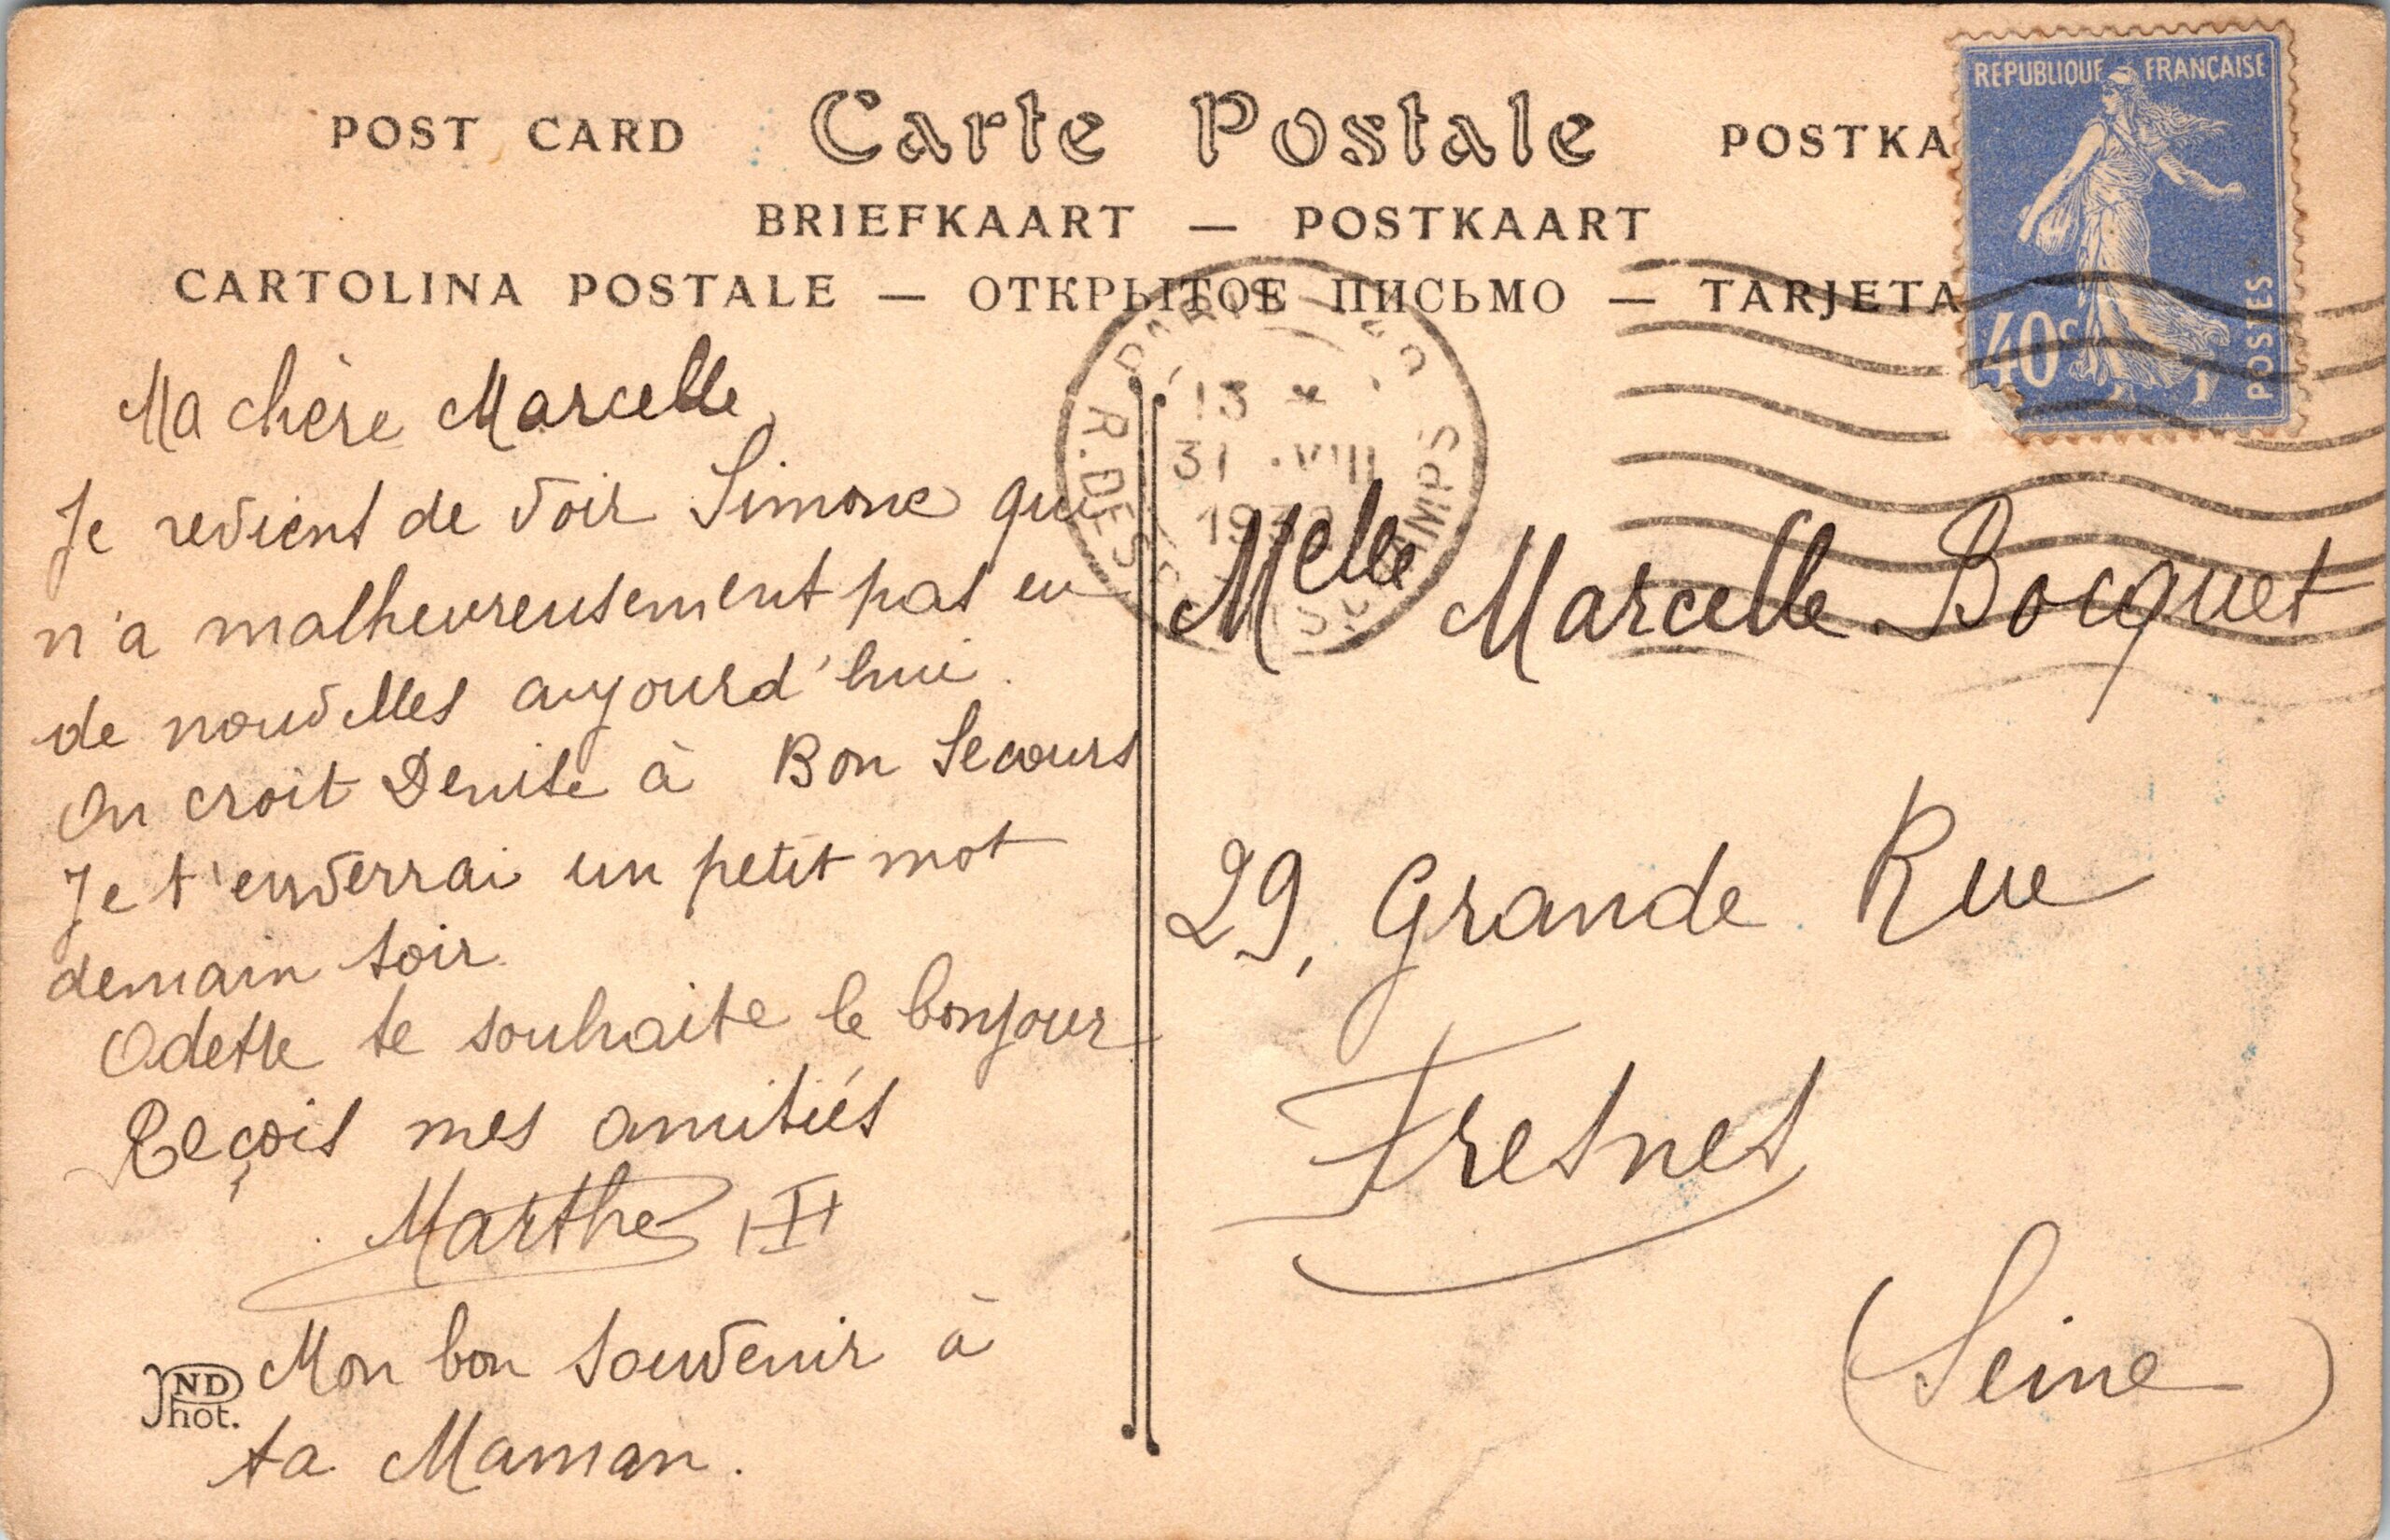 POST CARD Carte Postale POSTKA
BRIEFKAART — POSTKAART
CARTOLINA POSTALE — ОТКРЫТОЕ ПИСЬМО — TARJETA
REPUBLIQUE FRANÇAISE
40c
POSTES
13
31 VIII
R. DES
Ma chère Marcelle,
Je revient de voir Simone qui
n'a malheureusement pas eu
de nouvelles aujourd'hui.
On croit Denise à Bon Secours
Je t'enverrai un petit mot
demain soir.
Odette te souhaite le bonjour
Reçois mes amitiés
Marthe
Mon bon souvenir à
ta Maman.
ND
Phot.
Melle Marcelle Bocquet
29, Grande Rue
Fresnes
(Seine)